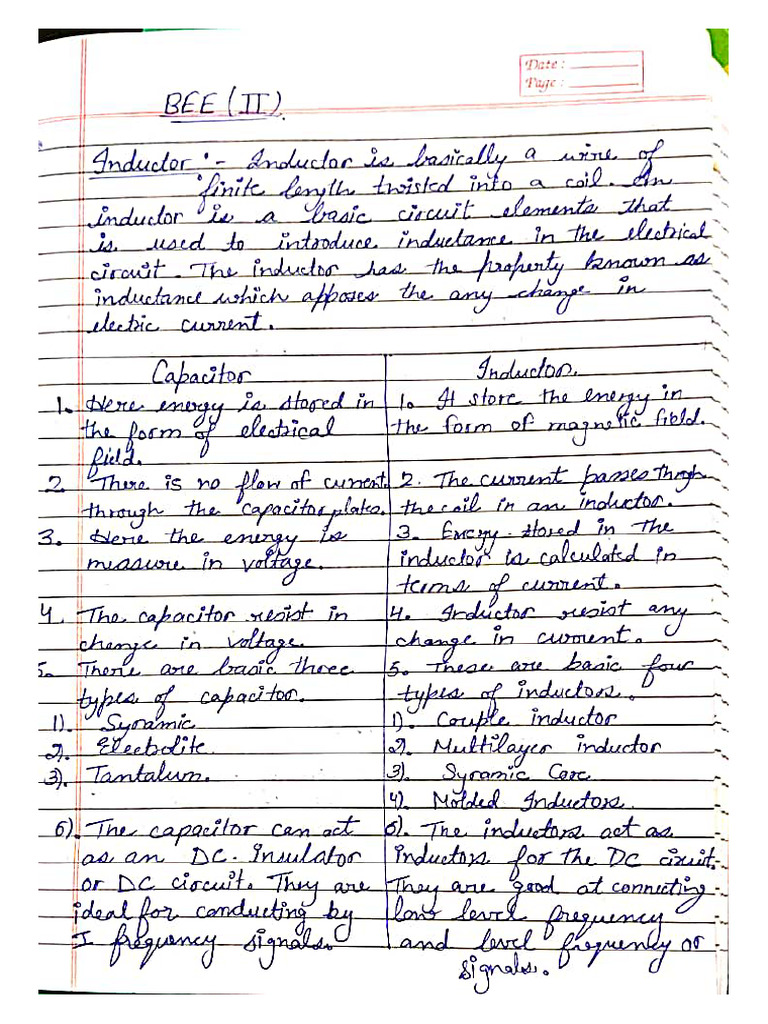 Date :
Page :
BEE (II).
Inductor :- Inductor is basically a wire of
finite length twisted into a coil. An
inductor is a basic circuit elements that
is used to introduce inductance in the electrical
circuit. The inductor has the property known as
inductance which apposes the any change in
electric current.
Capacitor
1. Here energy is stored in
the form of electrical
field.
2. There is no flow of current
through the capacitor plates.
3. Here the energy is
measure in voltage.
4. The capacitor resist in
change in voltage.
5. There are basic three
types of capacitor.
1). Syramic
2). Electrolite
3). Tantalum.
6). The capacitor can act
as an DC. Insulator
or DC circuit. They are
ideal for conducting by
I frequency signals.
Inductor.
1. It store the energy in
the form of magnetic field.
2. The current passes through
the coil in an inductor.
3. Energy stored in the
inductor is calculated in
terms of current.
4. Inductor resist any
change in current.
5. These are basic four
types of inductors.
1). Couple inductor
2). Multilayer inductor
3). Syramic Core
4). Molded Inductors
6). The inductors act as
inductors for the DC cixuit.
They are good at connecting
low level frequency
and level frequency or
signals.